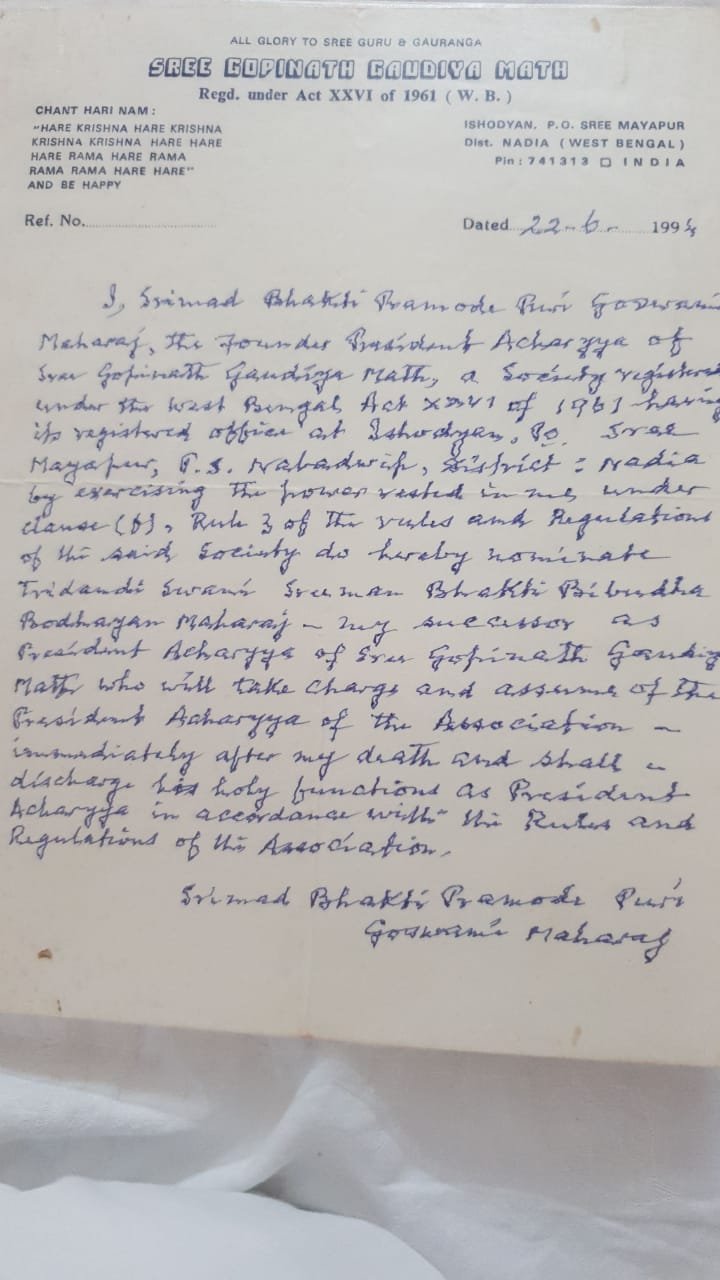 ALL GLORY TO SREE GURU & GAURANGA
SREE GOPINATH GAUDIYA MATH
Regd. under Act XXVI of 1961 ( W. B. )
CHANT HARI NAM :
"HARE KRISHNA HARE KRISHNA
KRISHNA KRISHNA HARE HARE
HARE RAMA HARE RAMA
RAMA RAMA HARE HARE"
AND BE HAPPY
ISHODYAN. P.O. SREE MAYAPUR
Dist. NADIA ( WEST BENGAL )
Pin : 741313 □ INDIA
Ref. No.
Dated 22-6- 199
I, Srimad Bhakti Pramode Puri Goswami
Maharaj, the Founder President Acharyya of
Sree Gopinath Gaudiya Math, a Society registered
under the West Bengal Act XXVI of 1961 having
its registered office at Ishodyan, Po. Sree
Mayapur, P.S. Nabadwip, District : Nadia
by exercising the power vested in me, under
clause (b), Rule 3 of the rules and Regulations
of the said Society do hereby nominate
Tridandi Swami Sreeman Bhakti Bibudha
Bodhayan Maharaj - my successor as
President Acharyya of Sree Gopinath Gaudiy
Math who will take charge and assume of the
President Acharyya of the Association -
immediately after my death and shall -
discharge his holy functions as President
Acharyya in accordance with the Rules and
Regulations of the Association.
Srimad Bhakti Pramode Puri
Goswami Maharaj